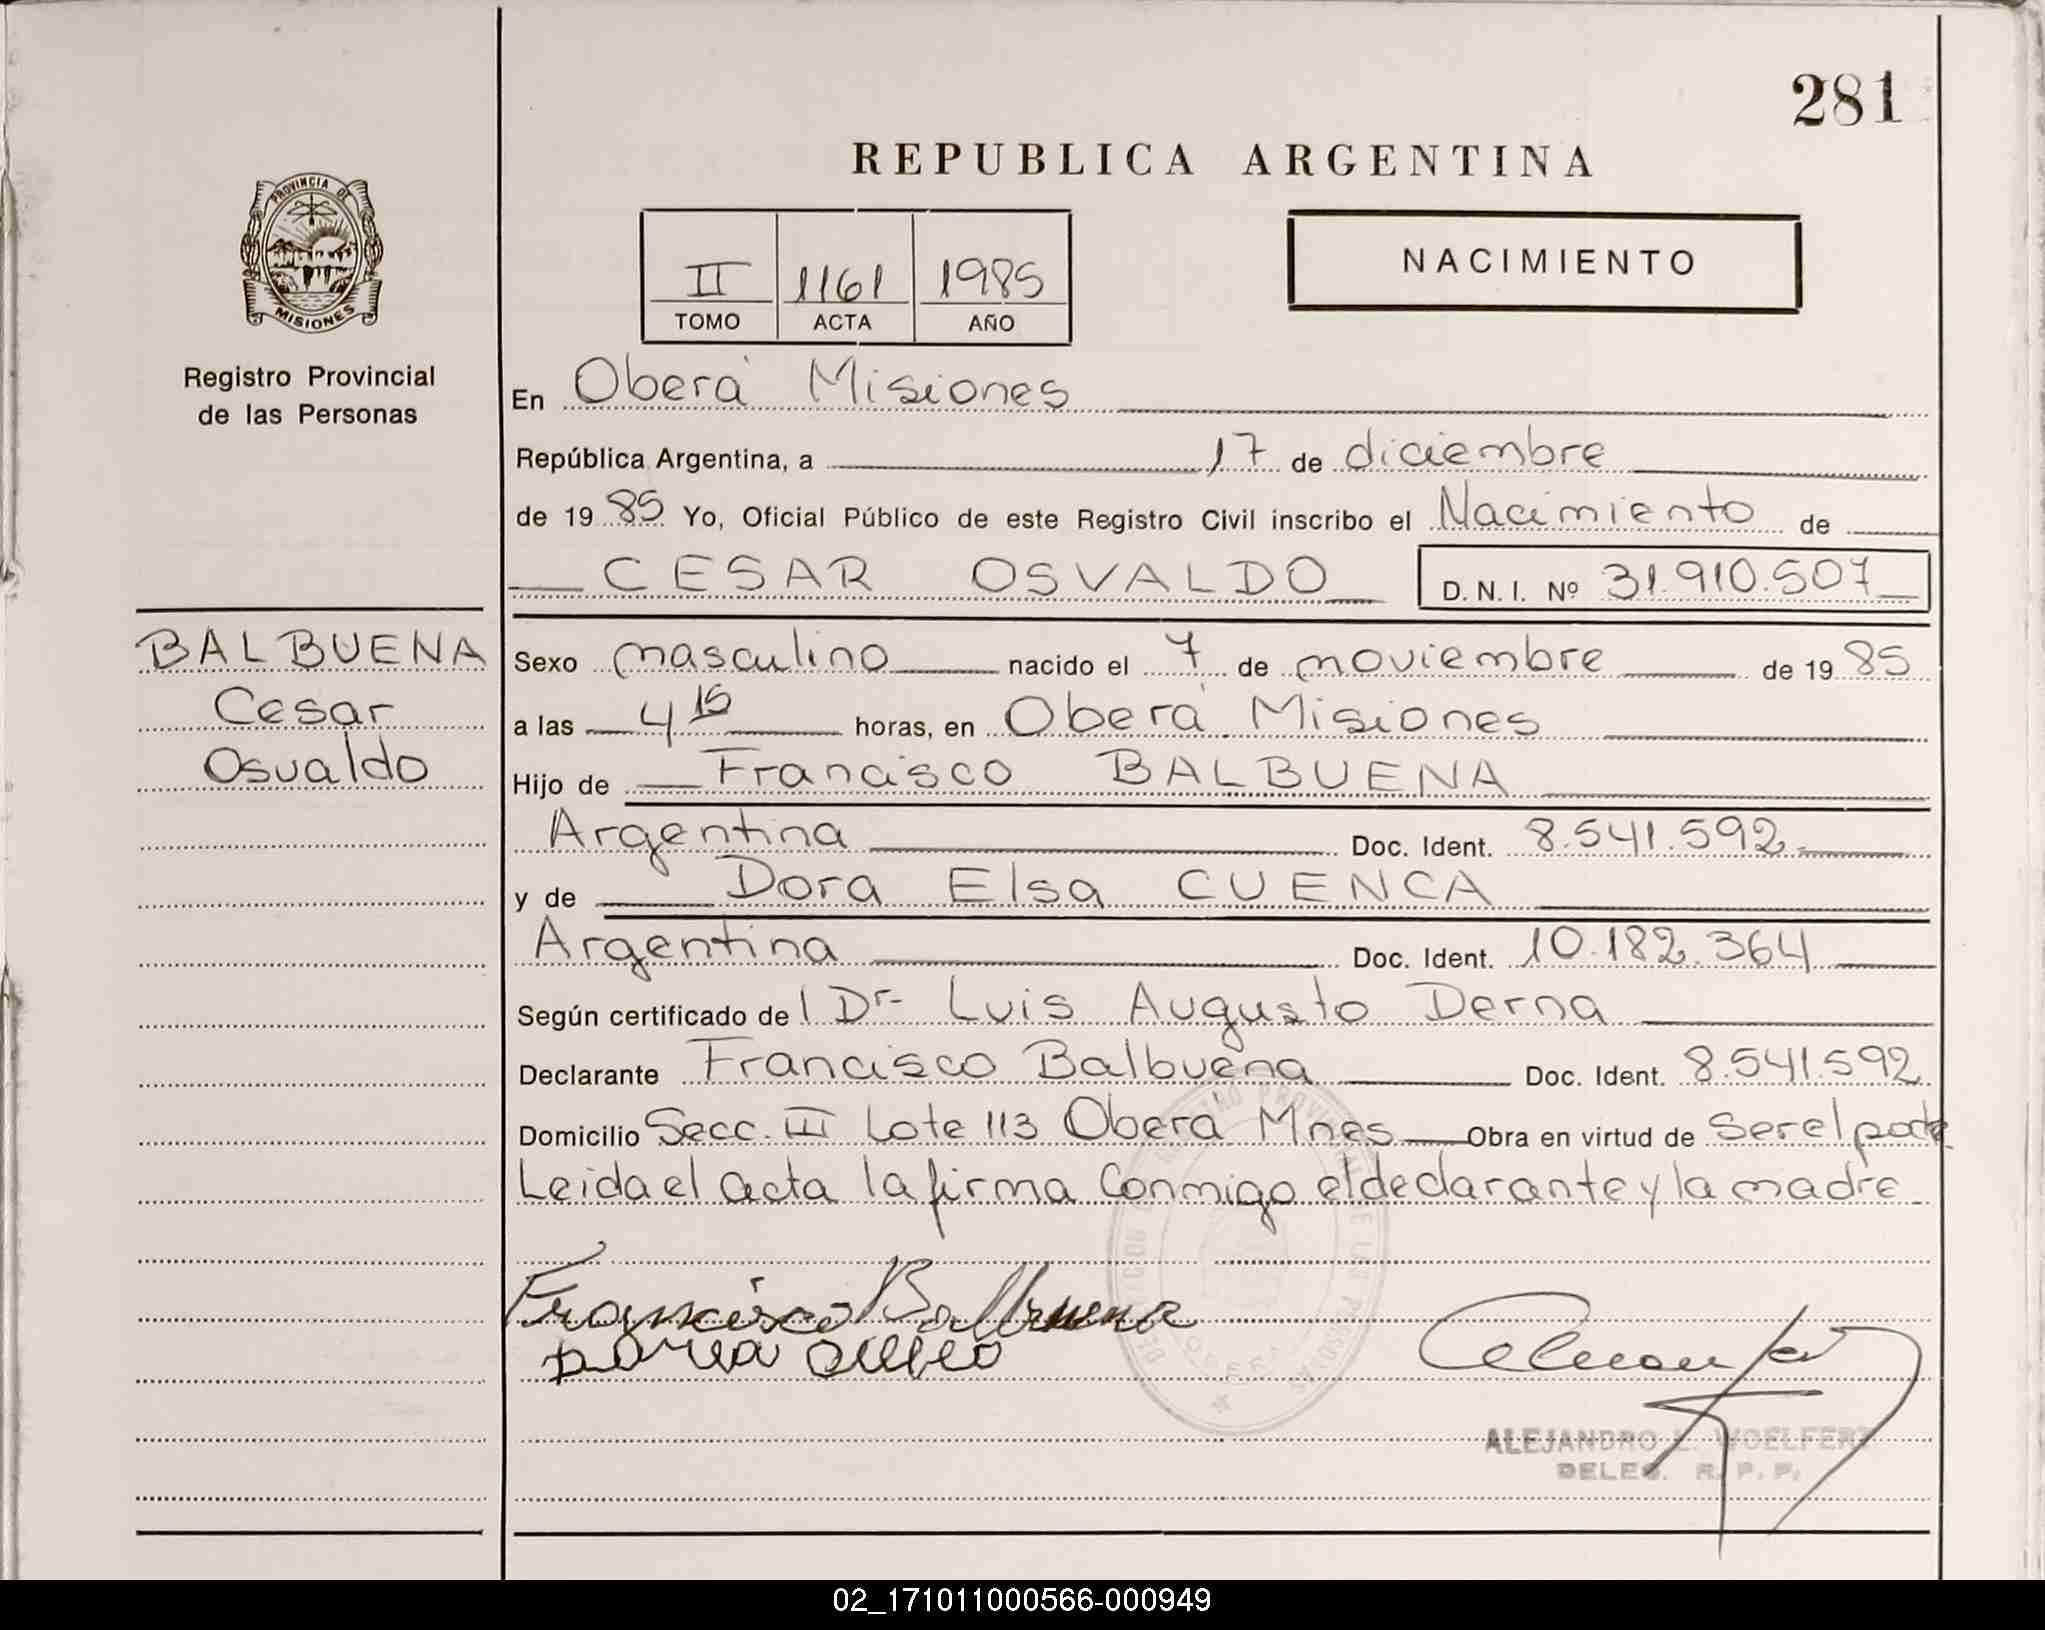 281
REPUBLICA ARGENTINA
PROVINCIA DE
MISIONES
Registro Provincial
de las Personas
II 1161 1985
TOMO ACTA AÑO
NACIMIENTO
En Oberá Misiones
República Argentina, a 17 de diciembre
de 1985 Yo, Oficial Público de este Registro Civil inscribo el Nacimiento de
CESAR OSVALDO D.N.I. Nº 31.910.507
BALBUENA
Cesar
Osvaldo
Sexo masculino nacido el 7 de noviembre de 1985
a las 4 15 horas, en Oberá Misiones
Hijo de Francisco BALBUENA
Argentina Doc. Ident. 8.541.592
y de Dora Elsa CUENCA
Argentina Doc. Ident. 10.182.364
Según certificado del Dr. Luis Augusto Derna
Declarante Francisco Balbuena Doc. Ident. 8.541.592
Domicilio Secc. III Lote 113 Oberá Mnes Obra en virtud de Ser el padre
Leida el acta la firma Conmigo el declarante y la madre
Francisco Balbuena
ALEJANDRO L. WOELFERT
DELEG. R. P. P.
02_171011000566-000949